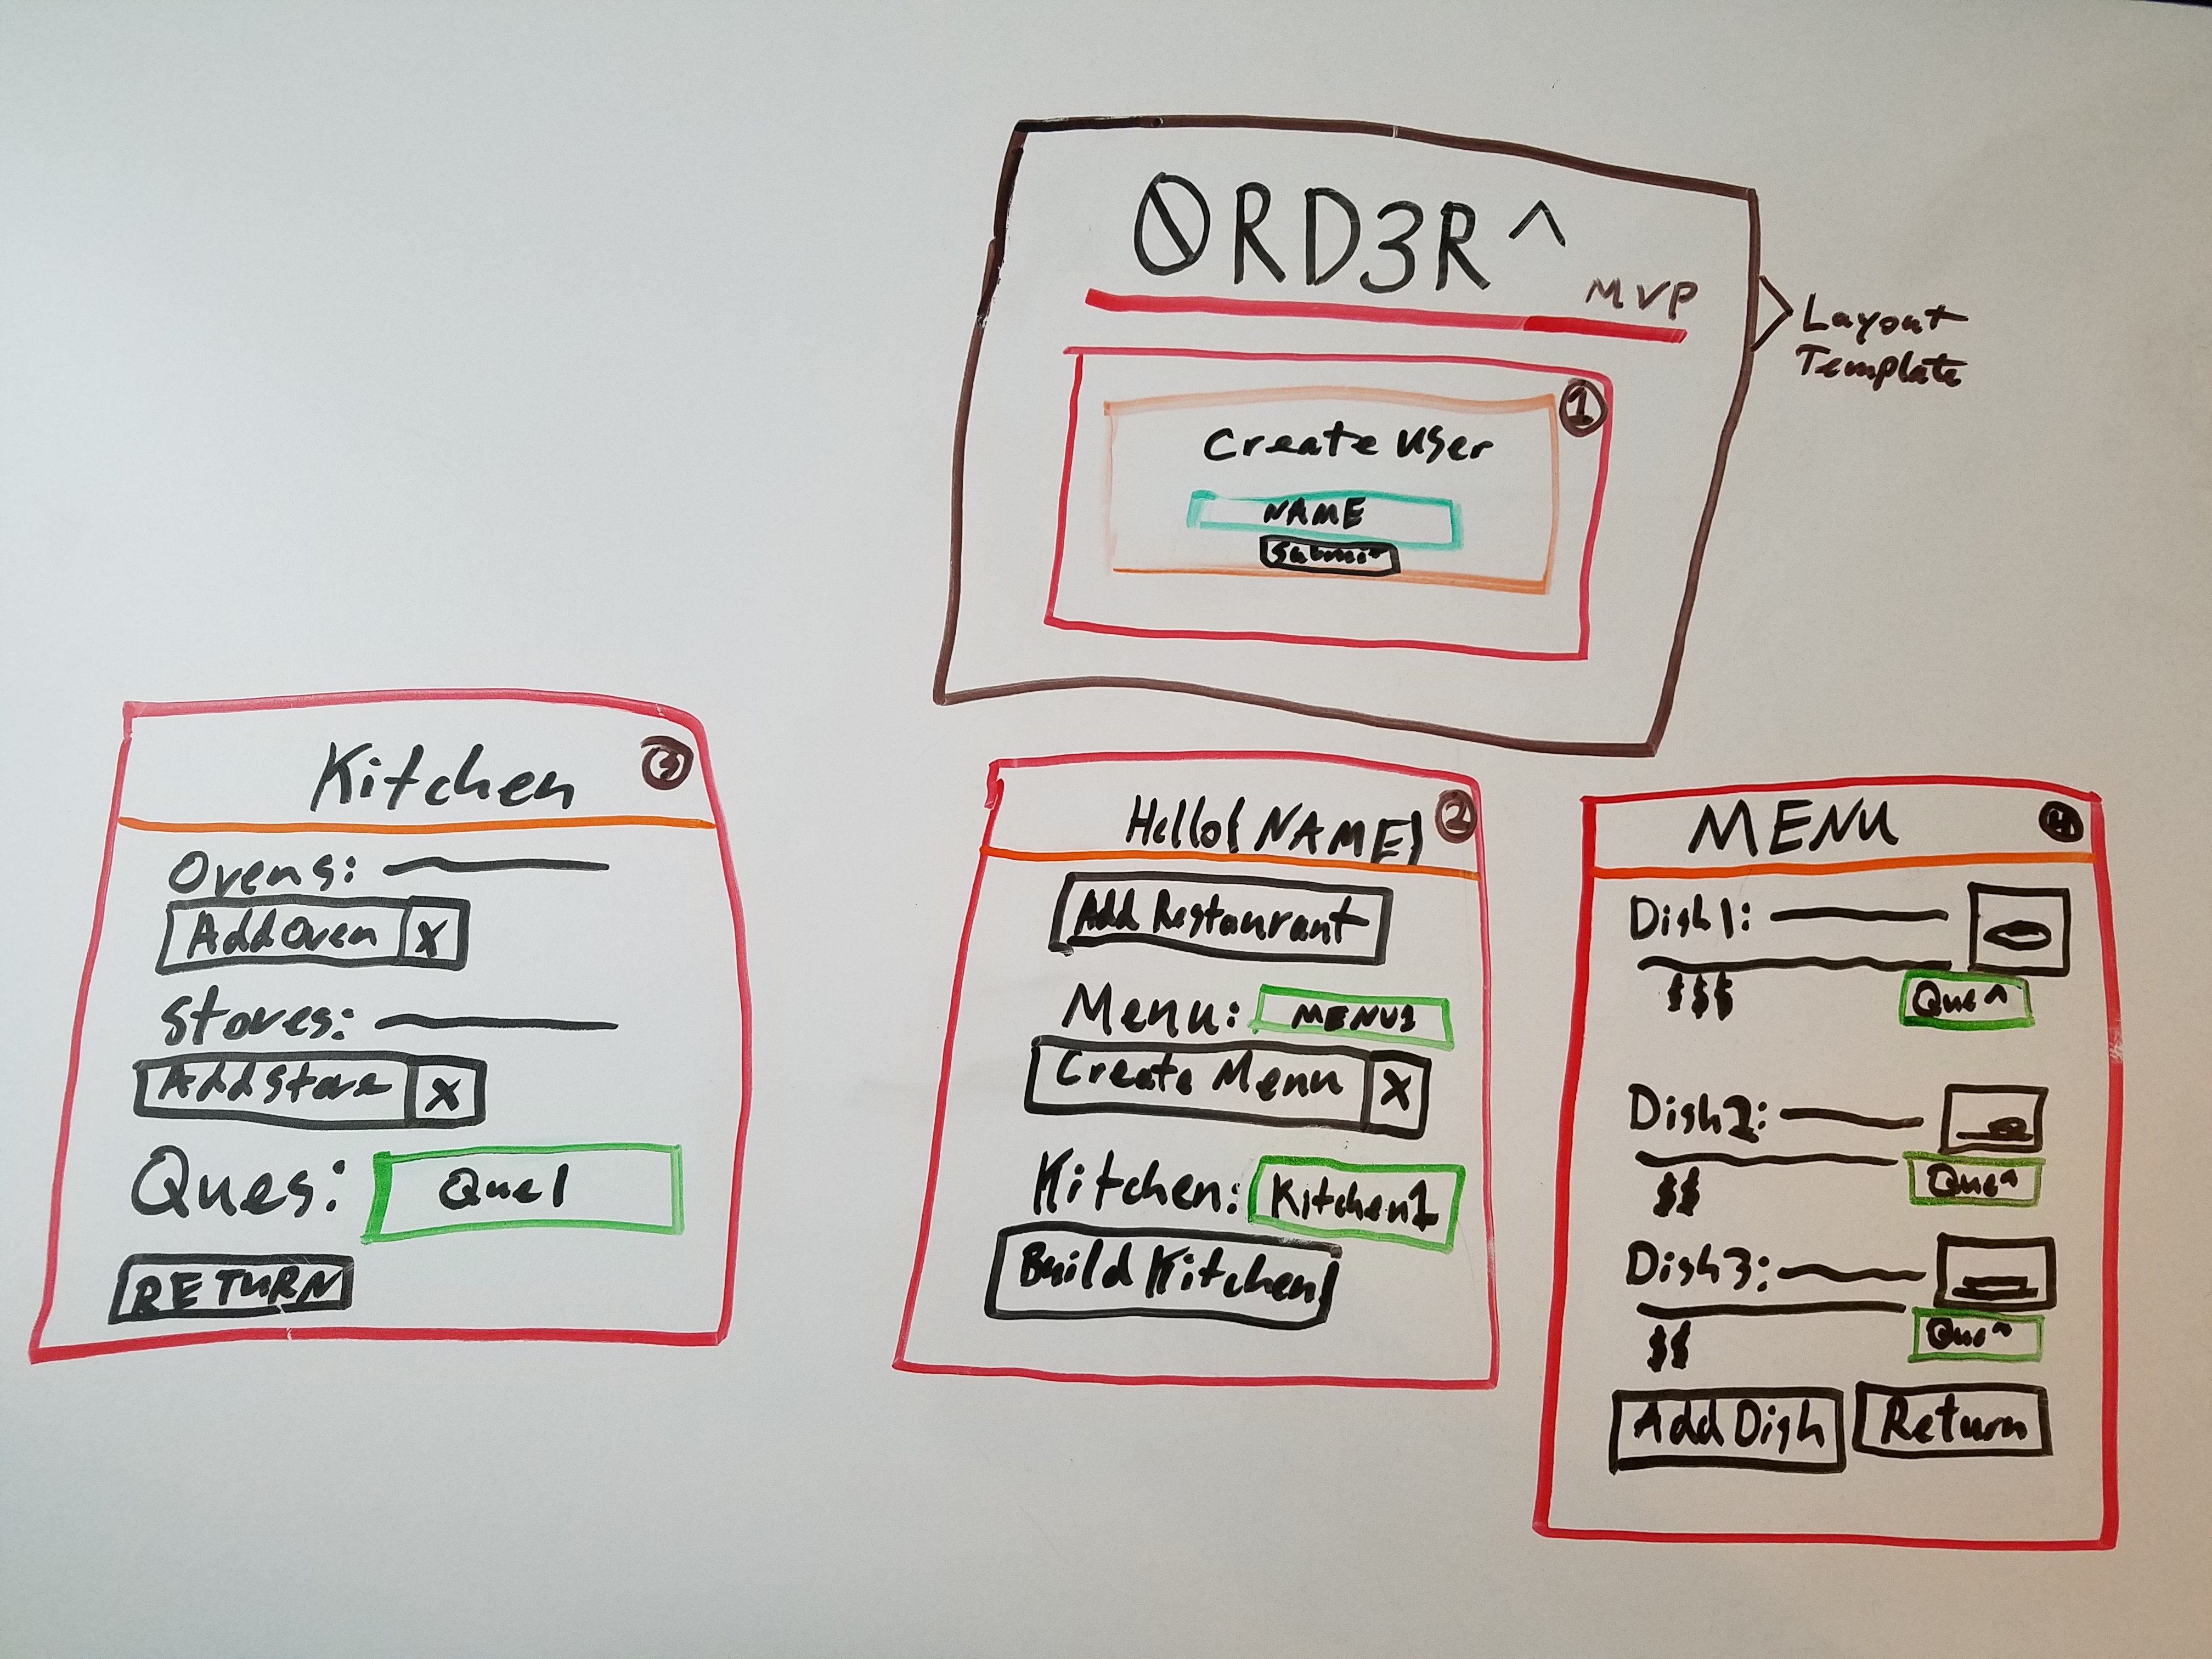 ØRD3R^
MVP
Layout
Template
1
Create User
NAME
Submit
Kitchen
3
Ovens:
Add Oven X
Stoves:
Add Stove X
Ques: Que1
RETURN
Hello{NAME}
2
Add Restaurant
Menu: MENU1
Create Menu X
Kitchen: Kitchen1
Build Kitchen
MENU
4
Dish1:
$$$ Que^
Dish2:
$$ Que^
Dish3:
$$ Que^
Add Dish Return